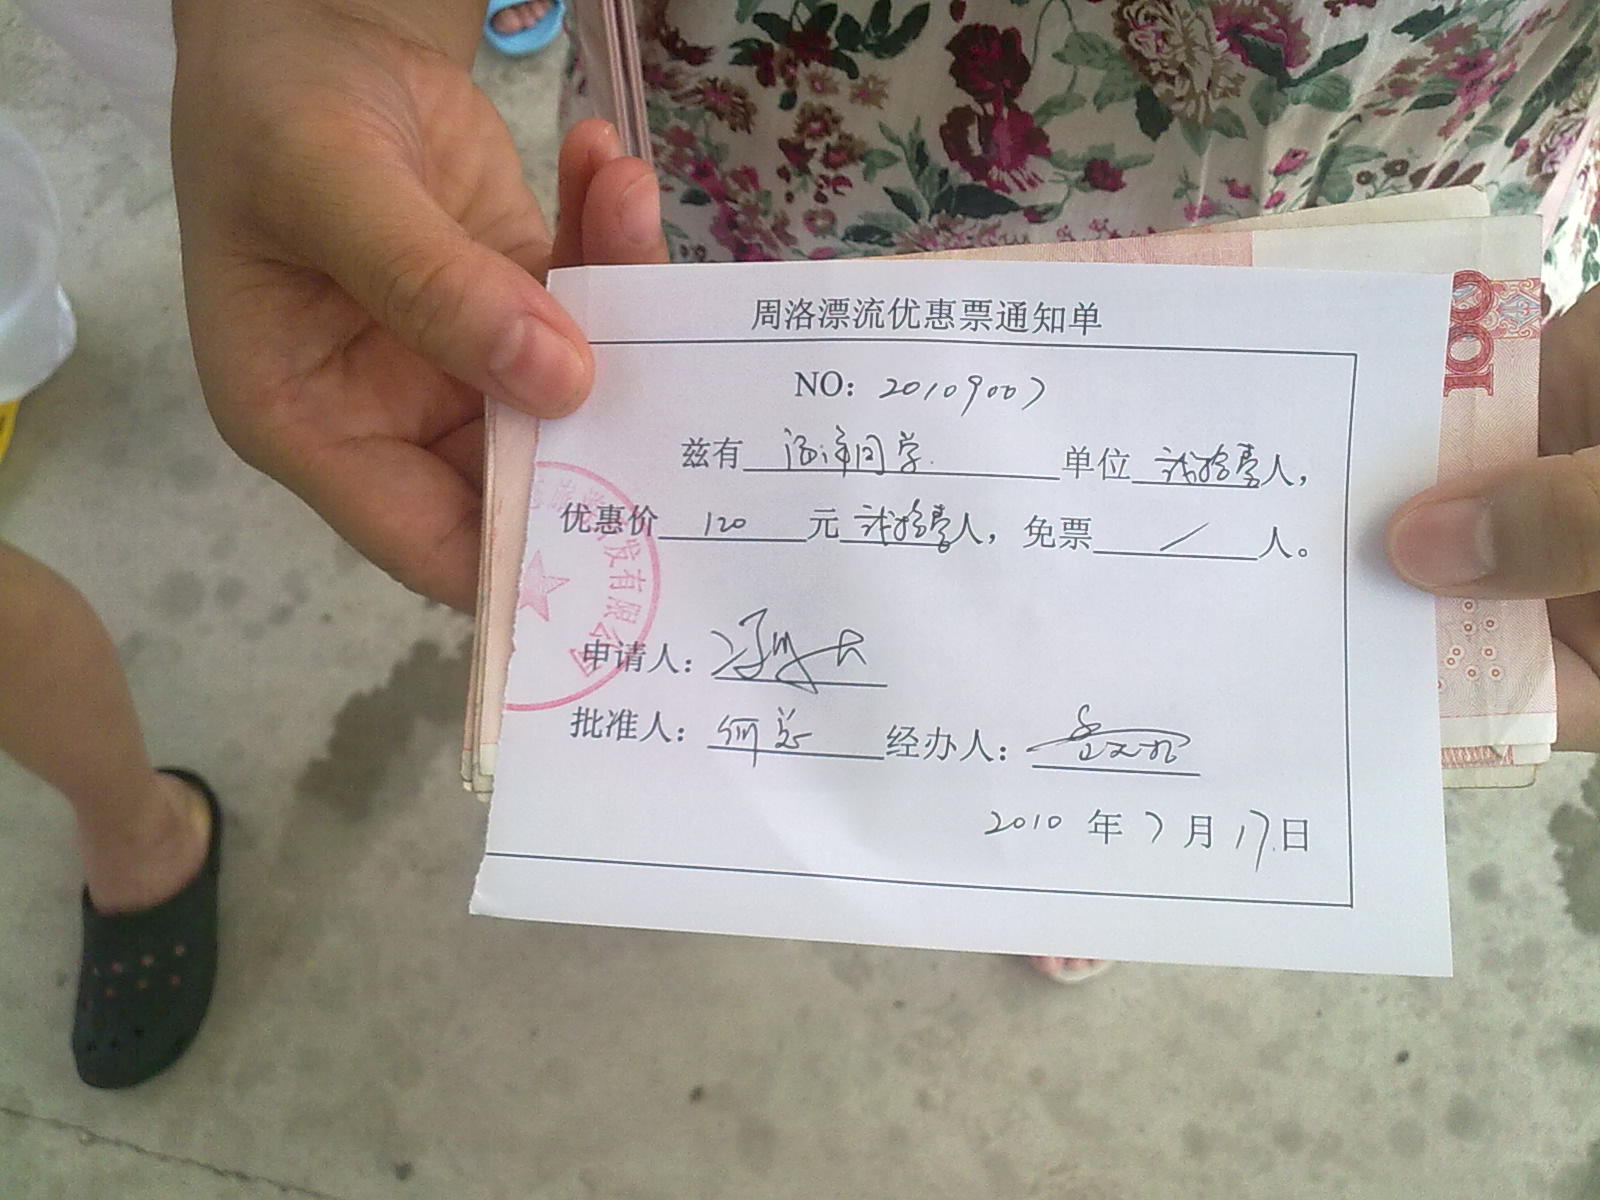 周洛漂流优惠票通知单
NO: 20109007
兹有 同学 单位 贰拾壹人，
优惠价 120 元 贰拾壹人，免票 / 人。
发有限公司
申请人：
批准人：何总 经办人：
2010 年 7 月 17 日
100